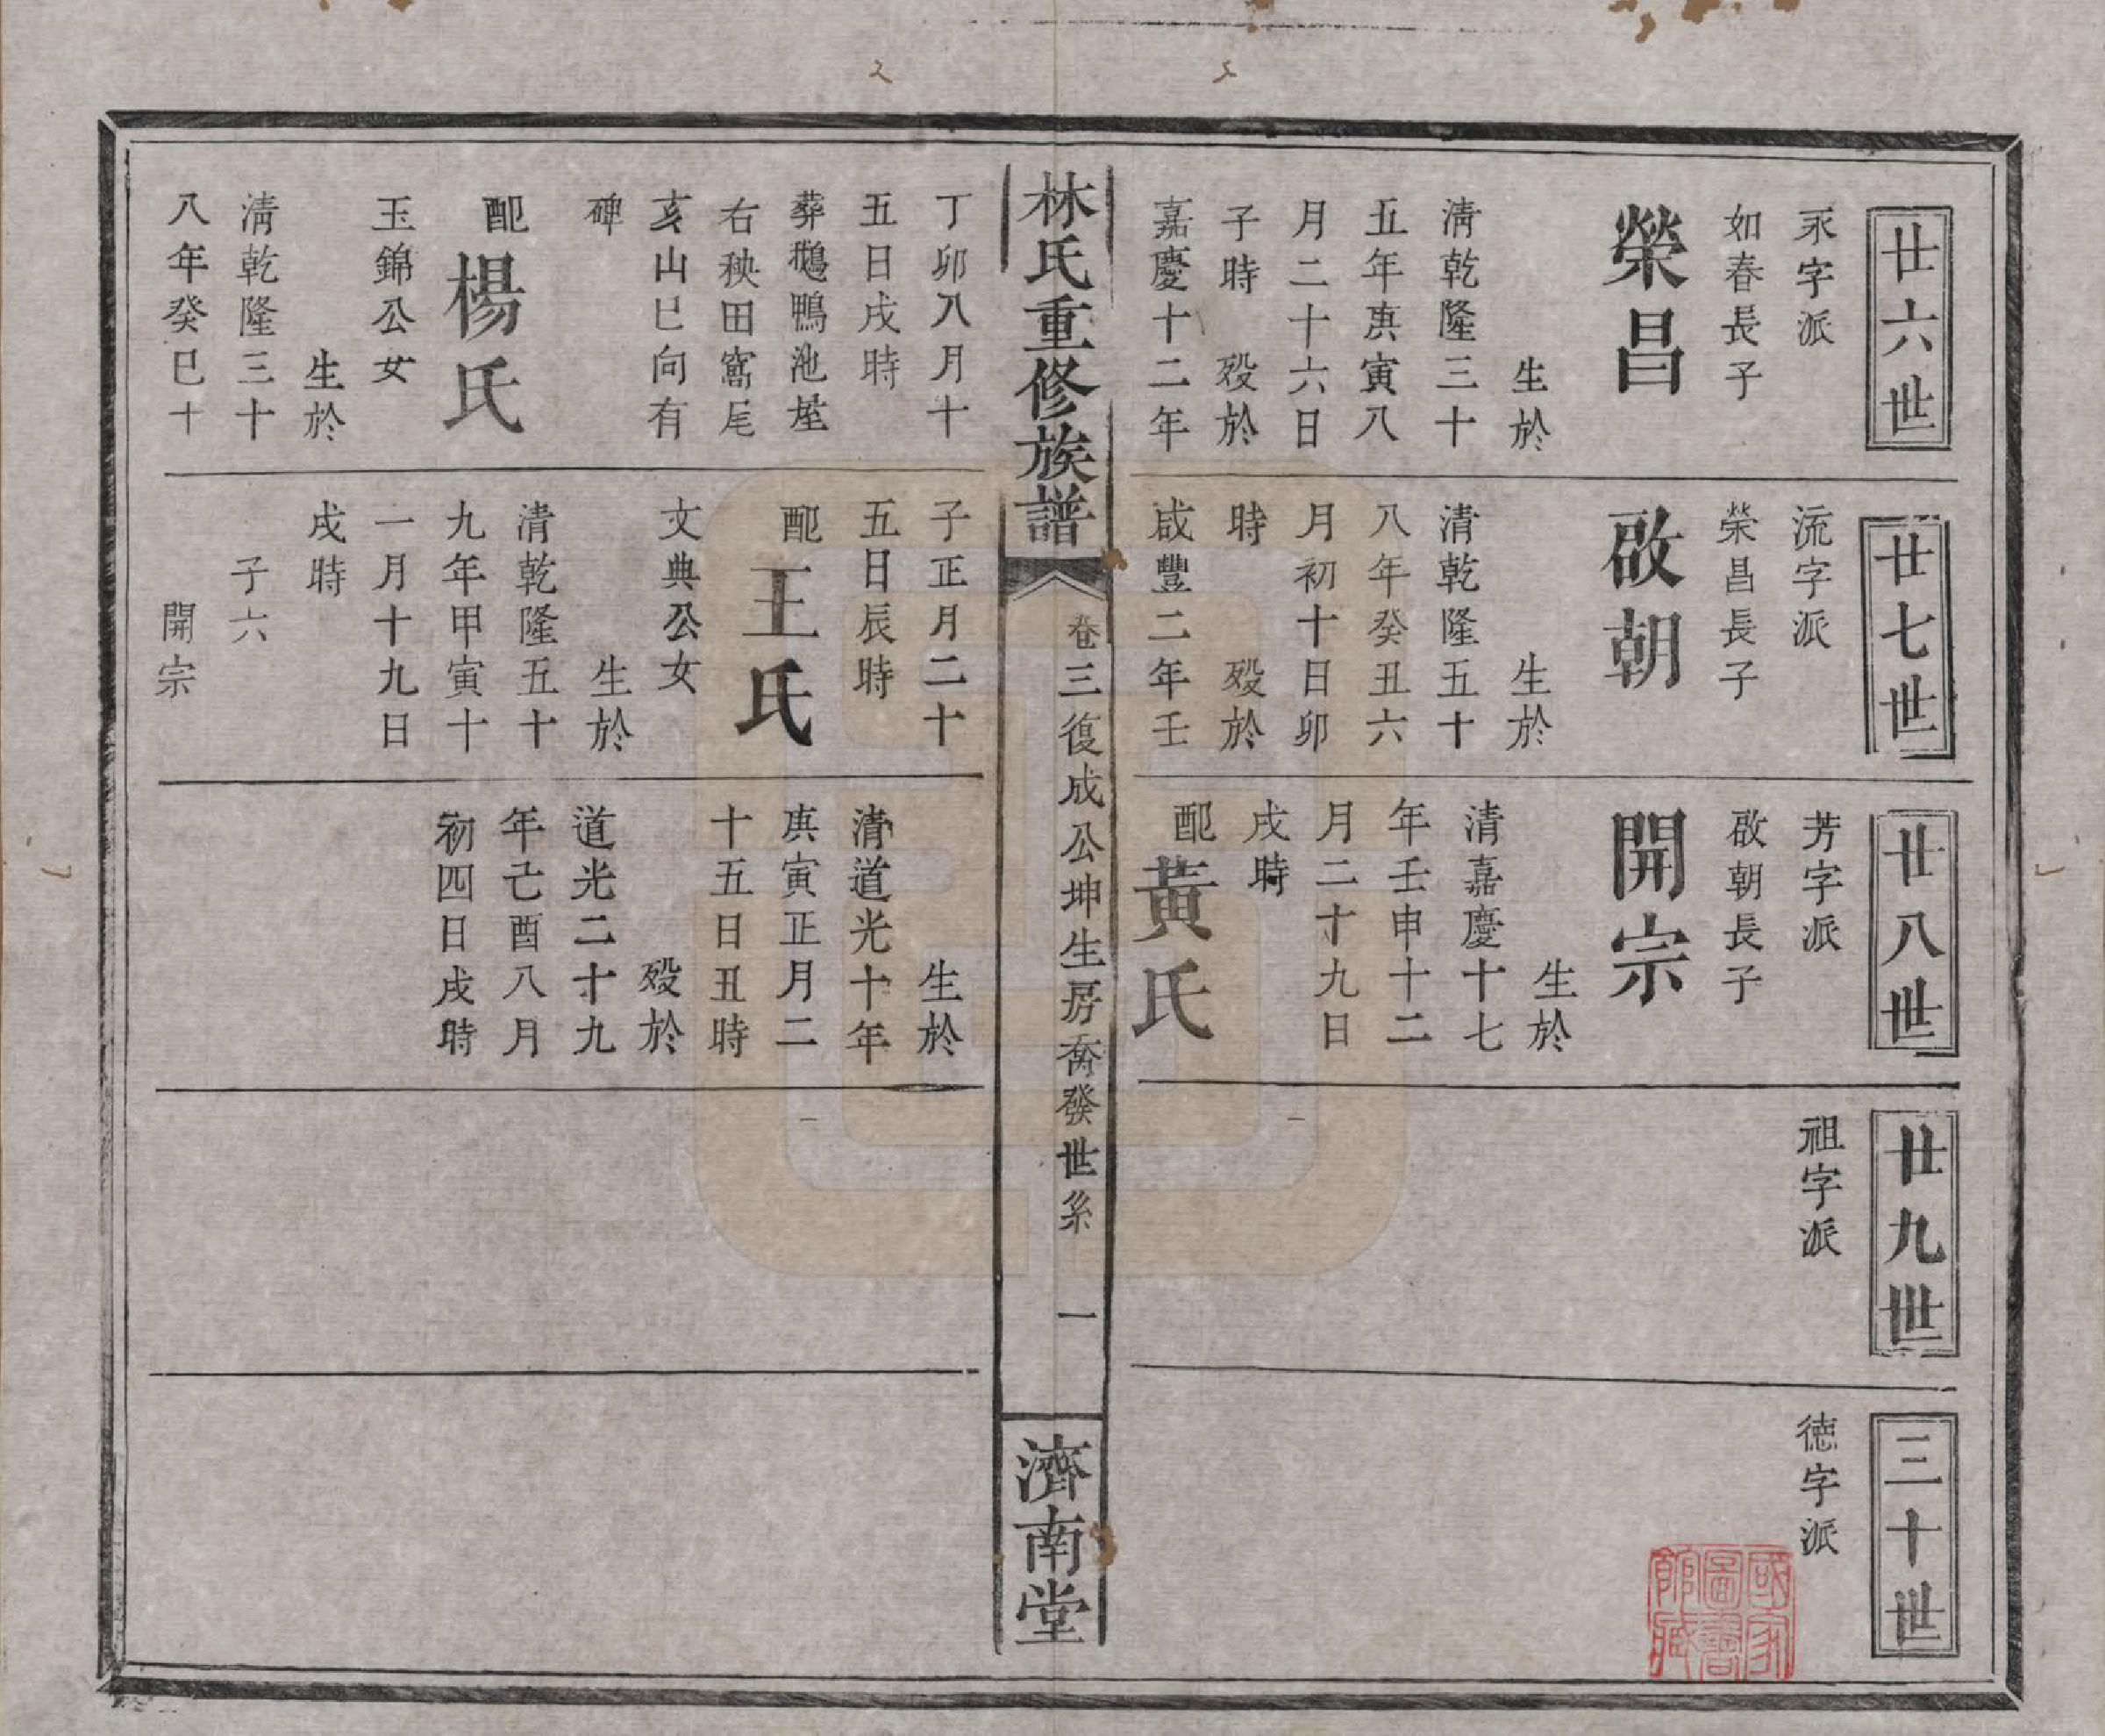 廿六世
永字派
如春長子
榮昌
生於
清乾隆三十
五年庚寅八
月二十六日
子時　歿於
嘉慶十二年
丁卯八月十
五日戌時
葬鵝鴨池坵
右秧田窩尾
亥山巳向有
碑
配楊氏
玉錦公女
生於
清乾隆三十
八年癸巳十
廿七世
流字派
榮昌長子
啟朝
生於
清乾隆五十
八年癸丑六
月初十日卯
時　歿於
咸豐二年壬
子正月二十
五日辰時
配王氏
文典公女
生於
清乾隆五十
九年甲寅十
一月十九日
戌時
子六
開宗
廿八世
芳字派
啟朝長子
開宗
生於
清嘉慶十七
年壬申十二
月二十九日
戌時
配黃氏
生於
清道光十年
庚寅正月二
十五日丑時
歿於
道光二十九
年己酉八月
初四日戌時
廿九世
祖字派
三十世
德字派
林氏重修族譜
卷三復成公坤生房喬發世系　一
濟南堂
國家圖書館藏